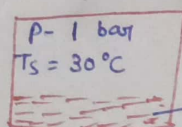 P- 1 bar
Ts = 30°C